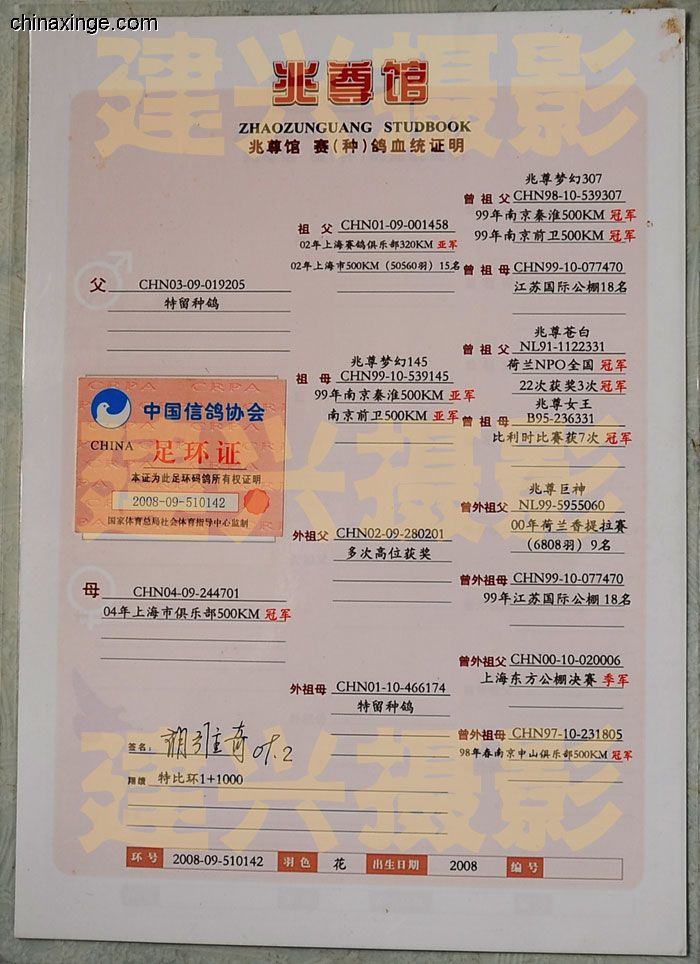 chinaxinge.com
建兴摄影
兆尊馆
ZHAOZUNGUANG STUDBOOK
兆尊馆 赛(种)鸽血统证明
父 CHN03-09-019205
特留种鸽
祖父 CHN01-09-001458
02年上海赛鸽俱乐部320KM 亚军
02年上海市500KM (50560羽) 15名
曾祖父
兆尊梦幻307
CHN98-10-539307
99年南京秦淮500KM 冠军
99年南京前卫500KM 冠军
曾祖母 CHN99-10-077470
江苏国际公棚18名
祖母
兆尊梦幻145
CHN99-10-539145
99年南京秦淮500KM 亚军
南京前卫500KM 亚军
曾祖父
兆尊苍白
NL91-1122331
荷兰NPO全国 冠军
22次获奖3次 冠军
曾祖母
兆尊女王
B95-236331
比利时比赛获7次 冠军
CRPA CRPA CRPA
中国信鸽协会
CHINA 足环证
本证为此足环码鸽所有权证明
2008-09-510142
国家体育总局社会体育指导中心监制
建兴摄影
母 CHN04-09-244701
04年上海市俱乐部500KM 冠军
外祖父 CHN02-09-280201
多次高位获奖
曾外祖父
兆尊巨神
NL99-5955060
00年荷兰香提拉赛
(6808羽) 9名
曾外祖母 CHN99-10-077470
99年江苏国际公棚 18名
外祖母 CHN01-10-466174
特留种鸽
曾外祖父 CHN00-10-020006
上海东方公棚决赛 季军
曾外祖母 CHN97-10-231805
98年春南京中山俱乐部500KM 冠军
签名:
翔绩 特比环1+1000
建兴摄影
环号 2008-09-510142 羽色 花 出生日期 2008 编号